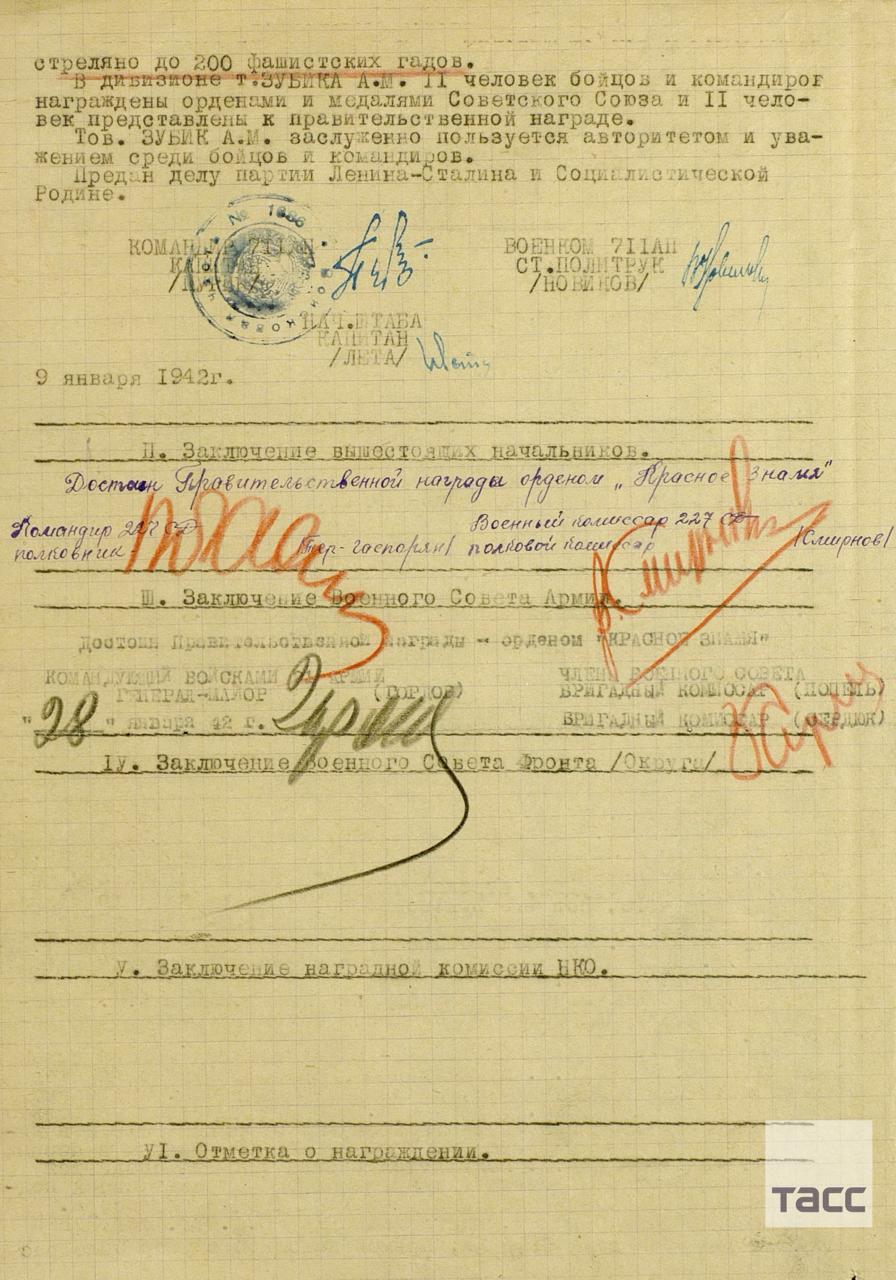 стреляно до 200 фашистских гадов.
В дивизионе т.ЗУБИКА А.М. II человек бойцов и командиров
награждены орденами и медалями Советского Союза и II чело-
век представлены к правительственной награде.
Тов. ЗУБИК А.М. заслуженно пользуется авторитетом и ува-
жением среди бойцов и командиров.
Предан делу партии Ленина-Сталина и Социалистической
Родине.
№ 1686
КОМАНДИР 711АП
КАПИТАН
ВОЕНКОМ 711АП
СТ.ПОЛИТРУК
/НОВИКОВ/
НАЧ.ШТАБА
КАПИТАН
/ЛЕТА/
9 января 1942г.
П. Заключение вышестоящих начальников.
Достоин Правительственной награды орденом „Красное Знамя"
Командир 227 СД
полковник /Тер-Гаспорян/
Военный комиссар 227 СД
полковой комиссар /Смирнов/
Ш. Заключение Военного Совета Армии.
Достоин Правительственной награды - орденом "КРАСНОЕ ЗНАМЯ"
КОМАНДУЮЩИЙ ВОЙСКАМИ АРМИИ
ГЕНЕРАЛ-МАЙОР (ГОРДОВ)
"28" января 42 г.
ЧЛЕНЫ ВОЕННОГО СОВЕТА
БРИГАДНЫЙ КОМИССАР (ПОПЕЛЬ)
БРИГАДНЫЙ КОМИССАР (СЕРДЮК)
IУ. Заключение Военного Совета Фронта /Округа/
У. Заключение наградной комиссии НКО.
УI. Отметка о награждении.
ТАСС